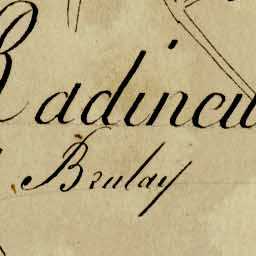 Radineu
Brulay